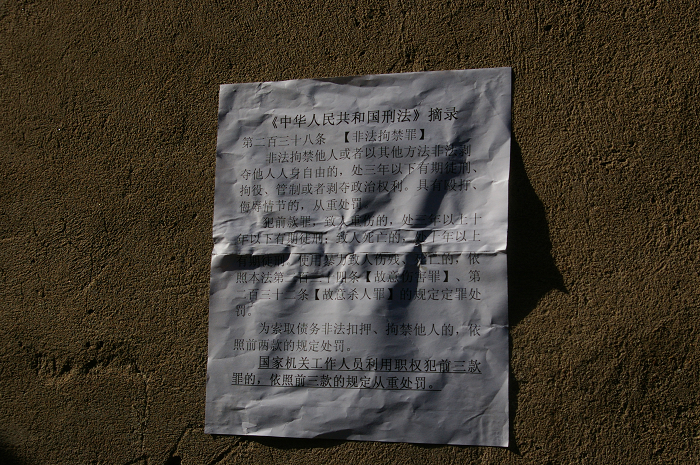 《中华人民共和国刑法》摘录
第二百三十八条 【非法拘禁罪】
非法拘禁他人或者以其他方法非法剥
夺他人人身自由的，处三年以下有期徒刑、
拘役、管制或者剥夺政治权利。具有殴打、
侮辱情节的，从重处罚。
犯前款罪，致人重伤的，处三年以上十
年以下有期徒刑；致人死亡的，处十年以上
有期徒刑。使用暴力致人伤残、死亡的，依
照本法第二百三十四条【故意伤害罪】、第
二百三十二条【故意杀人罪】的规定定罪处
罚。
为索取债务非法扣押、拘禁他人的，依
照前两款的规定处罚。
国家机关工作人员利用职权犯前三款
罪的，依照前三款的规定从重处罚。